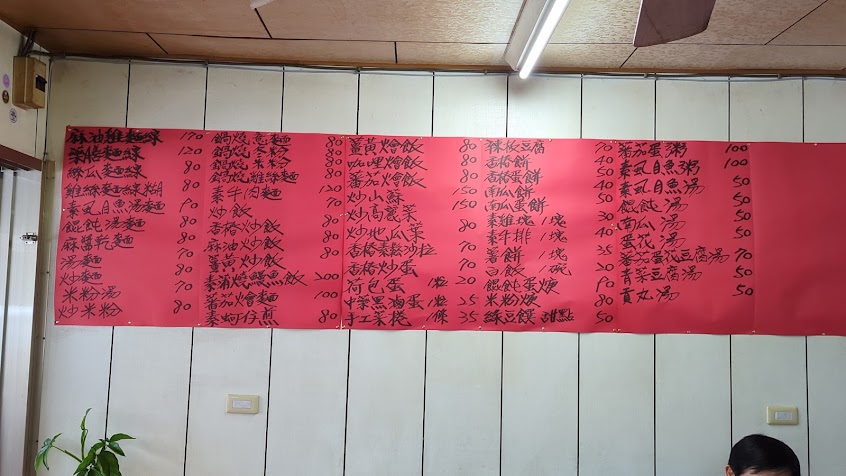 麻油雞麵線 170
藥膳麵線 120
絲瓜麵線 80
雞絲麵線糊 80
素虱目魚湯麵 80
餛飩湯麵 80
麻醬乾麵 80
湯麵 70
炒麵 80
米粉湯 70
炒米粉 80
鍋燒意麵 80
鍋燒冬粉 80
鍋燒米粉 80
鍋燒雞絲麵 80
素牛肉麵 120
炒飯 70
香椿炒飯 80
麻油炒飯 80
薑黃炒飯 80
素蒲燒鰻魚飯 200
番茄燴麵 100
素蚵仔煎 80
薑黃燴飯 80
咖哩燴飯 80
番茄燴飯 80
炒山蘇 150
炒高麗菜 150
炒地瓜葉
香椿素鬆沙拉 70
香椿炒蛋 70
荷包蛋 1粒 20
中藥黑滷蛋 1粒 25
手工菜捲 1條 35
辣板豆腐 70
香椿餅 40
香椿蛋餅 50
南瓜餅 40
南瓜蛋餅 50
素雞塊 1塊 30
素牛排 1塊 40
薯餅 1塊 35
白飯 1碗 20
餛飩蛋煉 80
米粉煉 80
綠豆饌 甜點 50
番茄蛋粥 100
素虱目魚粥 100
素虱目魚湯 50
餛飩湯 50
南瓜湯 50
蛋花湯 50
番茄蛋花豆腐湯 70
青菜豆腐湯 50
貢丸湯 50